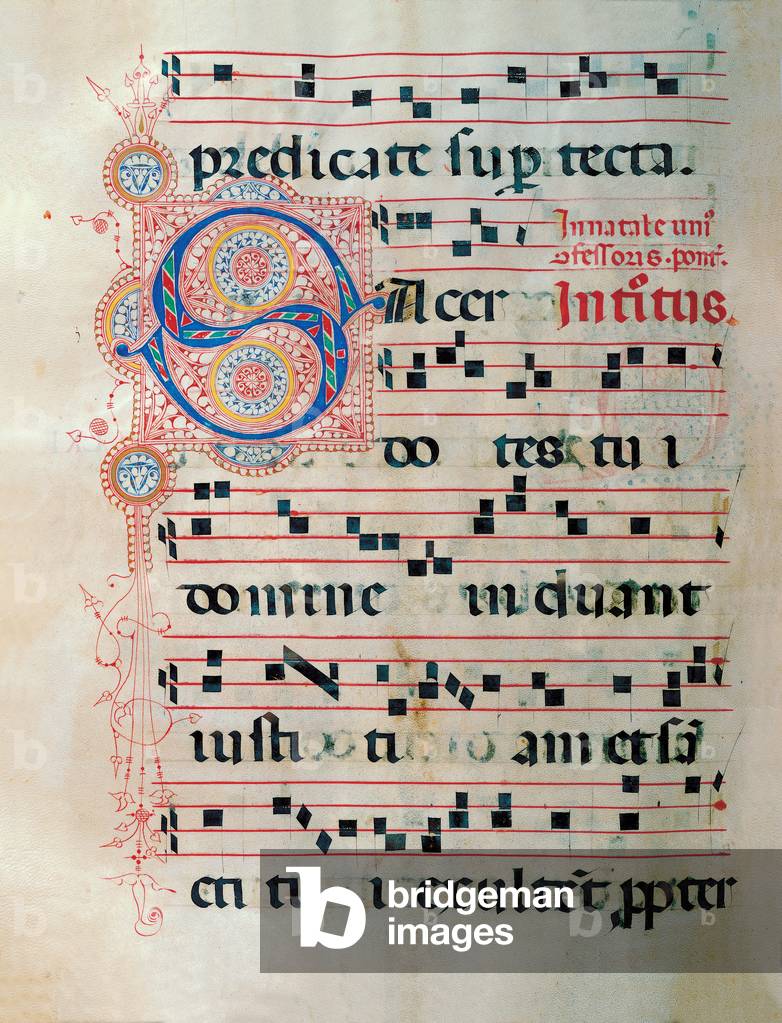 predicate sup tecta.
In natale uni⁹
ofessoris. pont.
SAcer Introitus
do tes tu i
domine induant
iusti ti am et sā
cti tu i exultēt ppter
bridgeman
images